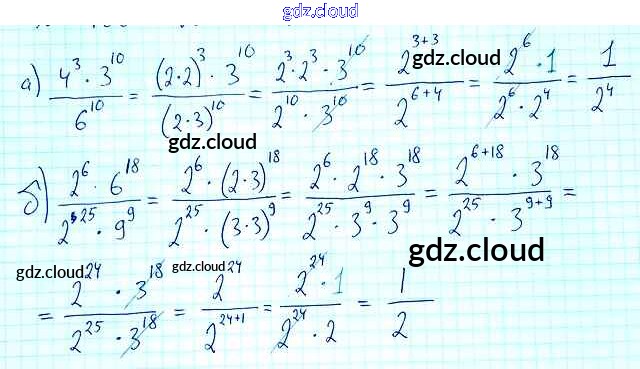 gdz.cloud
а) 4³ · 3¹⁰ / 6¹⁰ = (2·2)³ · 3¹⁰ / (2·3)¹⁰ = 2³·2³ · 3¹⁰ / 2¹⁰ · 3¹⁰ = 2³⁺³ / 2⁶⁺⁴ = 2⁶ · 1 / 2⁶ · 2⁴ = 1 / 2⁴
gdz.cloud
gdz.cloud
б) 2⁶ · 6¹⁸ / 2²⁵ · 9⁹ = 2⁶ · (2·3)¹⁸ / 2²⁵ · (3·3)⁹ = 2⁶ · 2¹⁸ · 3¹⁸ / 2²⁵ · 3⁹ · 3⁹ = 2⁶⁺¹⁸ · 3¹⁸ / 2²⁵ · 3⁹⁺⁹ =
gdz.cloud
gdz.cloud
gdz.cloud
= 2²⁴ · 3¹⁸ / 2²⁵ · 3¹⁸ = 2²⁴ / 2²⁴⁺¹ = 2²⁴ · 1 / 2²⁴ · 2 = 1 / 2